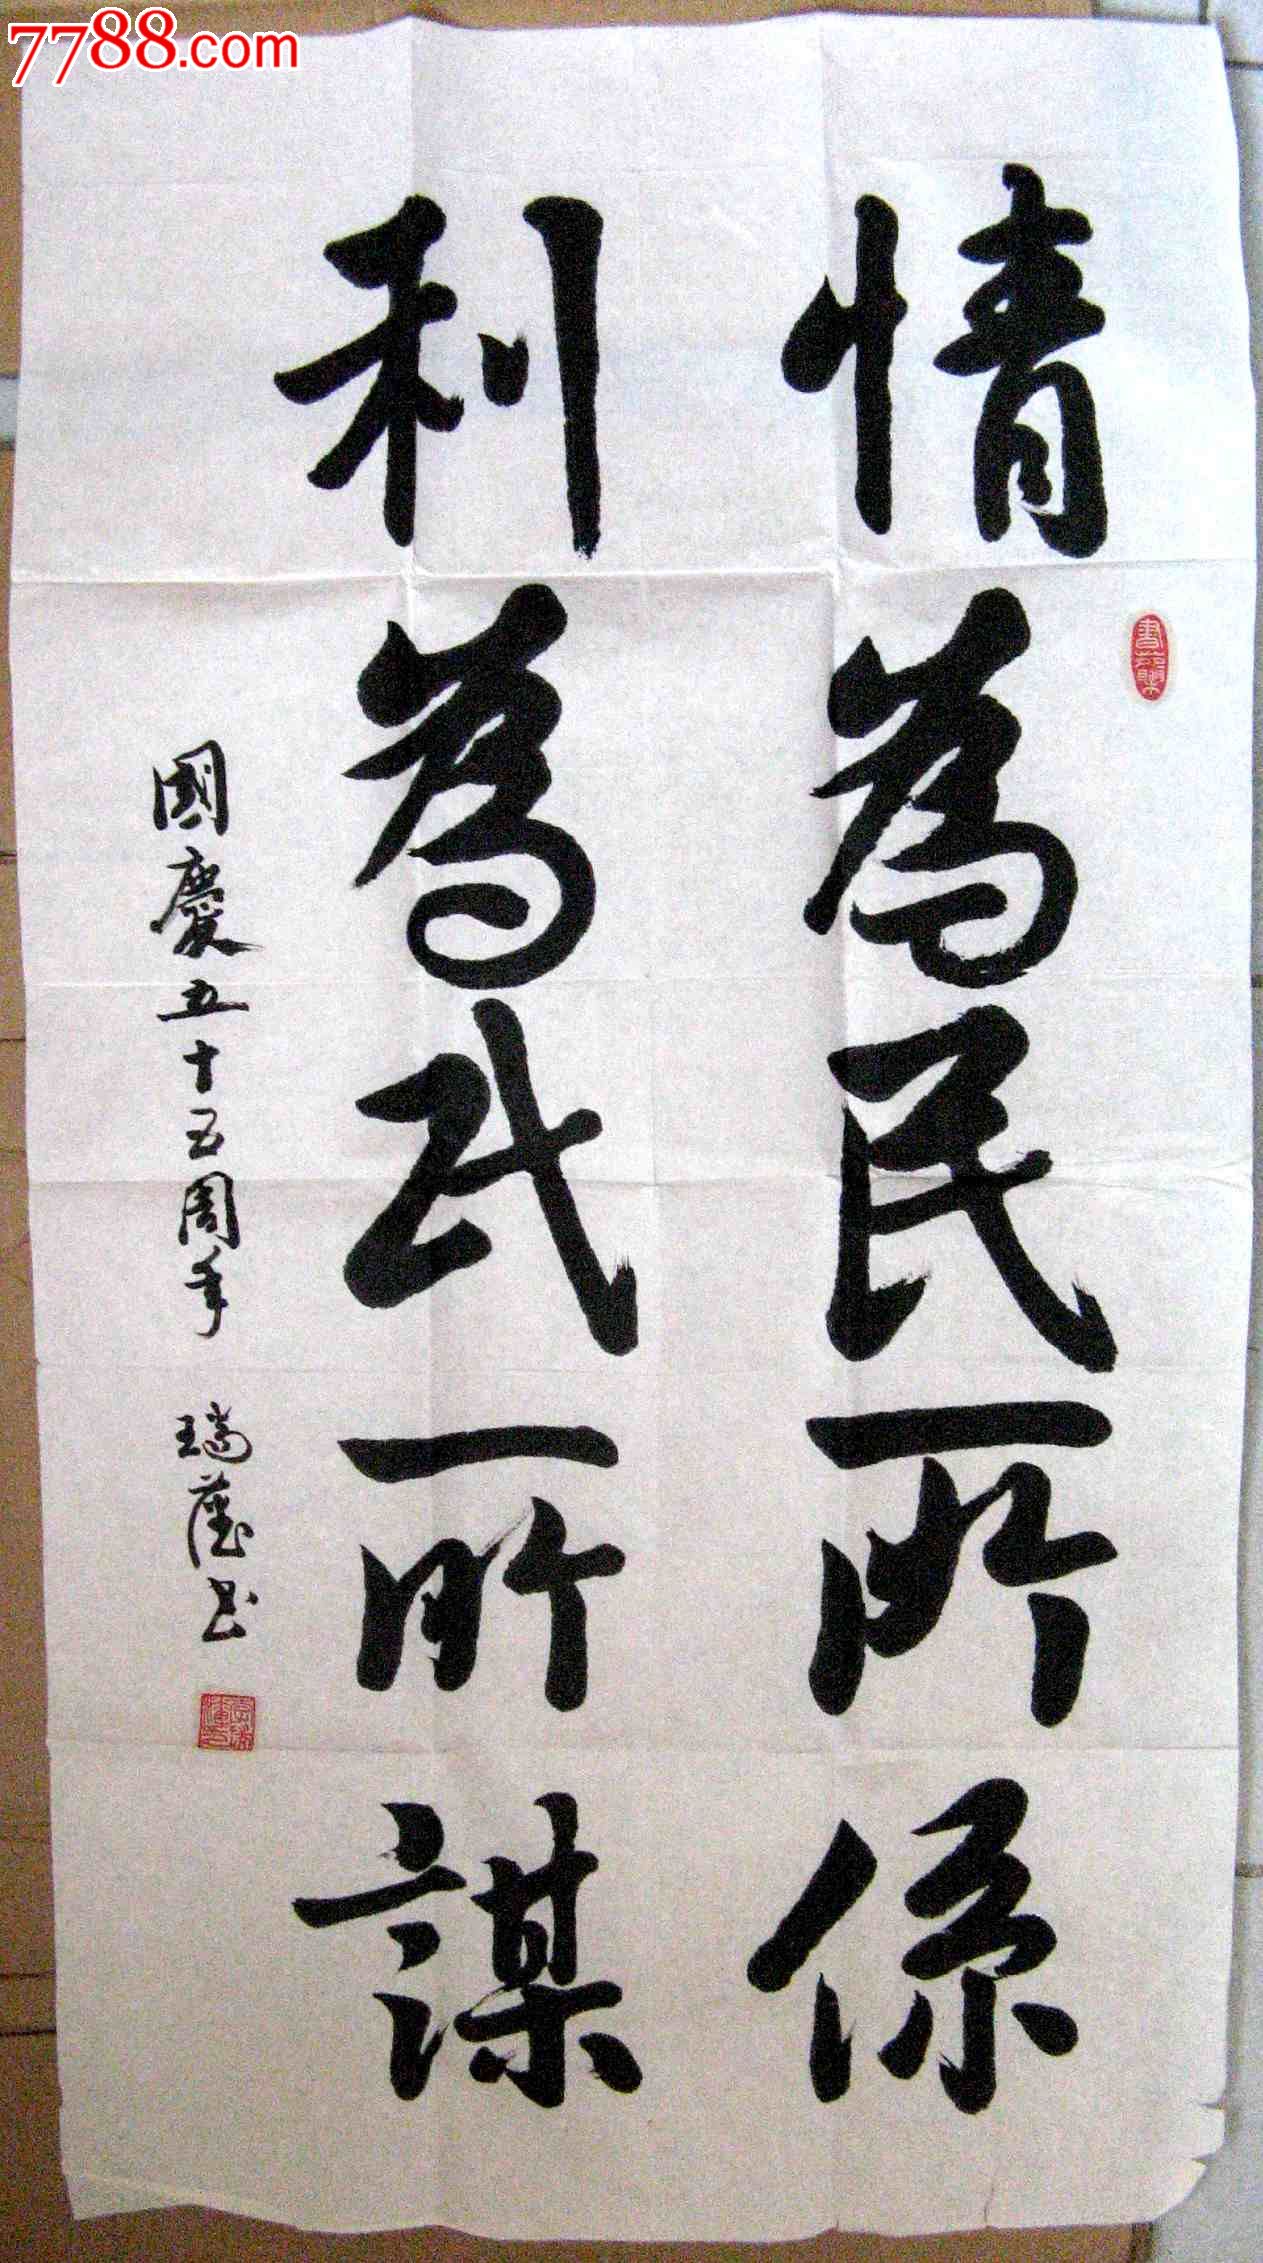 7788.com
情為民所係
利為民所謀
國慶五十五周年 瑞蓮书